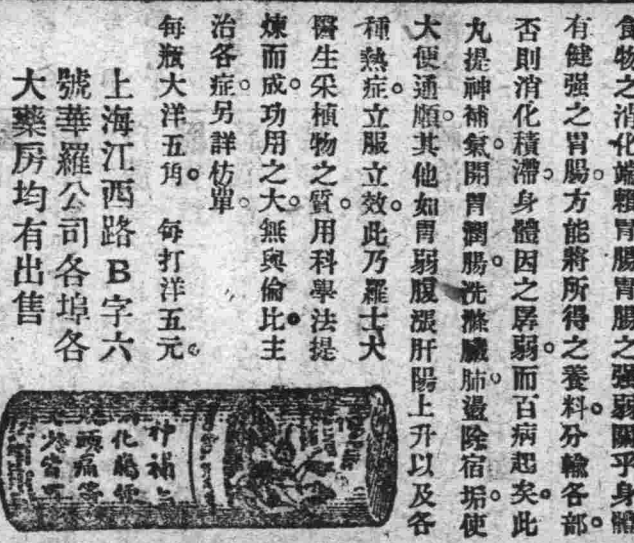 食物之消化端賴胃腸胃腸之强弱關乎身體
有健强之胃腸。方能將所得之養料。分輸各部。
否則消化積滯。身體因之孱弱。而百病起矣。此
丸提神補氣。開胃潤腸。洗滌臟肺。盪除宿垢。使
大便通順。其他如胃弱腹漲肝陽上升以及各
種熱症。立服立效。此乃羅士大
醫生采植物之質。用科學法提
煉而成。功用之大。無與倫比。主
治各症。另詳仿單。
每瓶大洋五角。 每打洋五元。
上海江西路B字六
號華羅公司各埠各
大藥房均有出售
補
神
化
頭痛